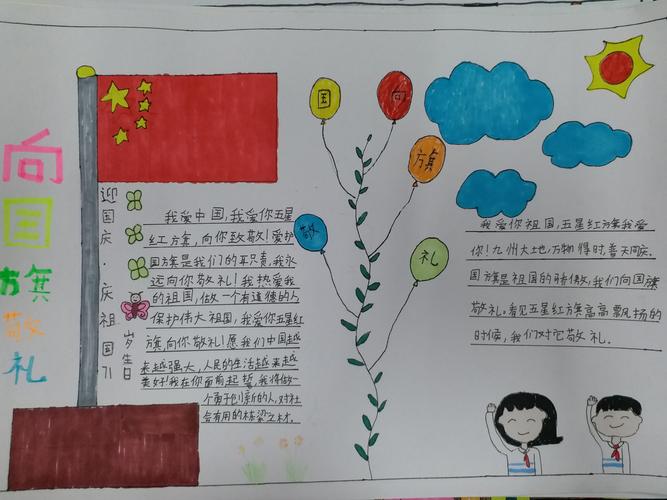 向国旗敬礼
迎国庆·庆祖国71
岁生日
我爱中国,我爱你五星
红旗,向你致敬!爱护
国旗是我们的职责,我永
远向你敬礼!我热爱我
的祖国,做一个有道德的人
保护伟大祖国,我爱你五星红
旗,向你敬礼!愿我们中国越
来越强大,人民的生活越来越
美好!我在你面前起誓,我将做一
个勇于创新的人,对社
会有用的栋梁之材.
国
向
旗
敬
礼
我爱你祖国,五星红旗我爱
你!九州大地,万物得时,普天同庆.
国旗是祖国的骄傲,我们向国旗
敬礼.看见五星红旗高高飘扬的
时候,我们对它敬礼.